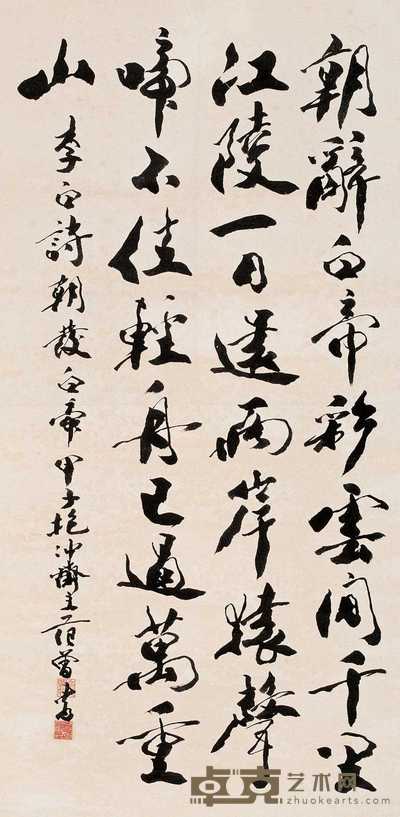 朝辭白帝彩雲間千里
江陵一日還兩岸猿聲
啼不住輕舟已過萬重
山
李白詩朝發白帝甲子抱沖齋主范曾書
卓克艺术网
zhuokearts.com